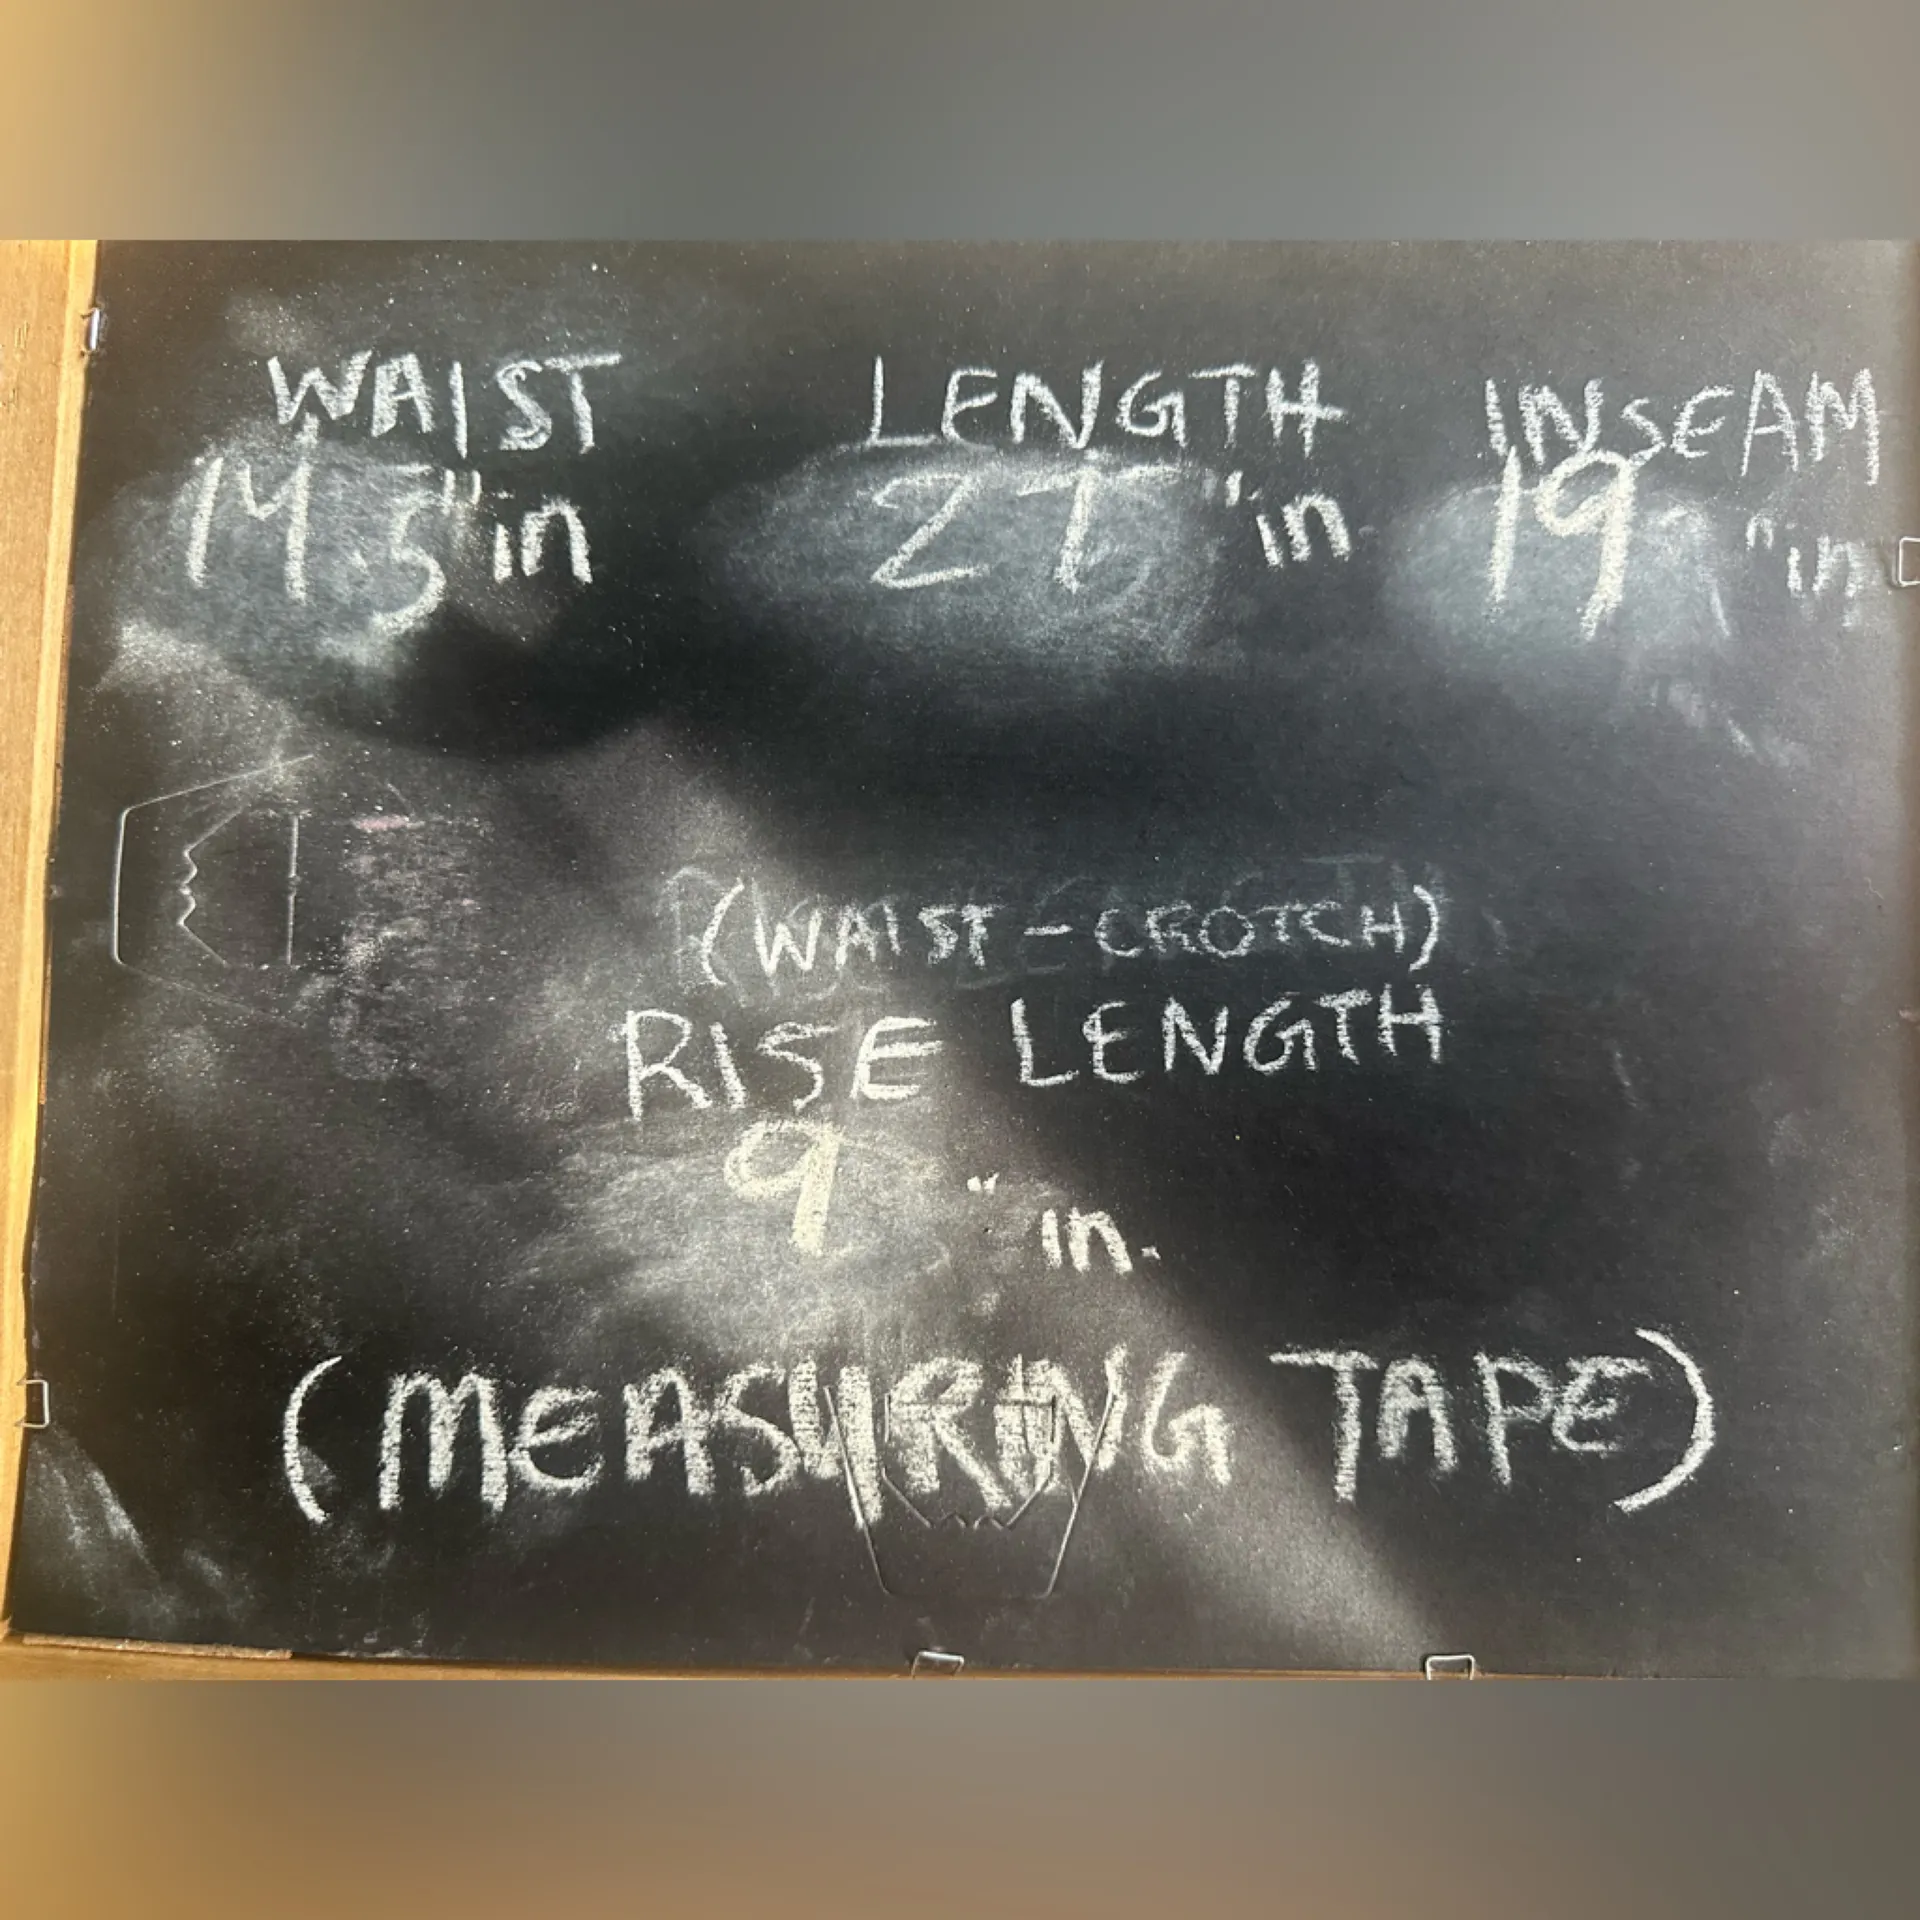 WAIST LENGTH INSEAM
14.5"in 27"in 19"in
(WAIST-CROTCH)
RISE LENGTH
9"in.
(MEASURING TAPE)